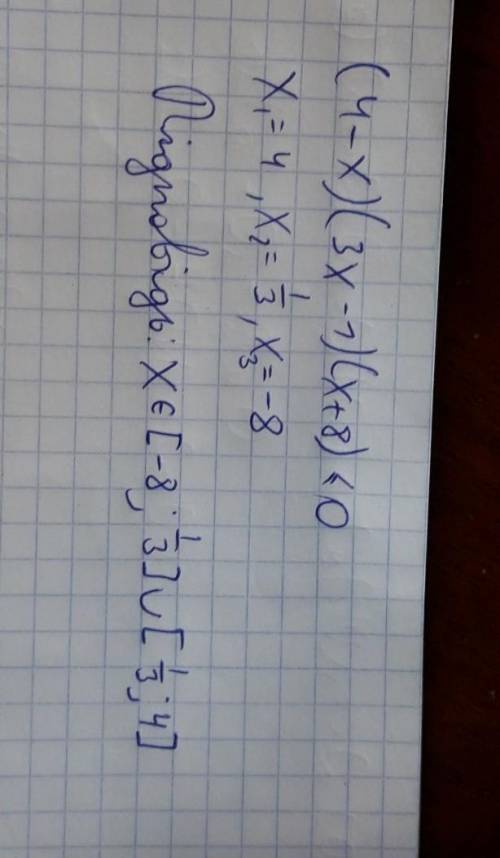 (4-x)(3x-1)(x+8)<0
x₁=4, x₂=1/3, x₃=-8
Підповідь: x∈[-8; 1/3]∪[1/3; 4]